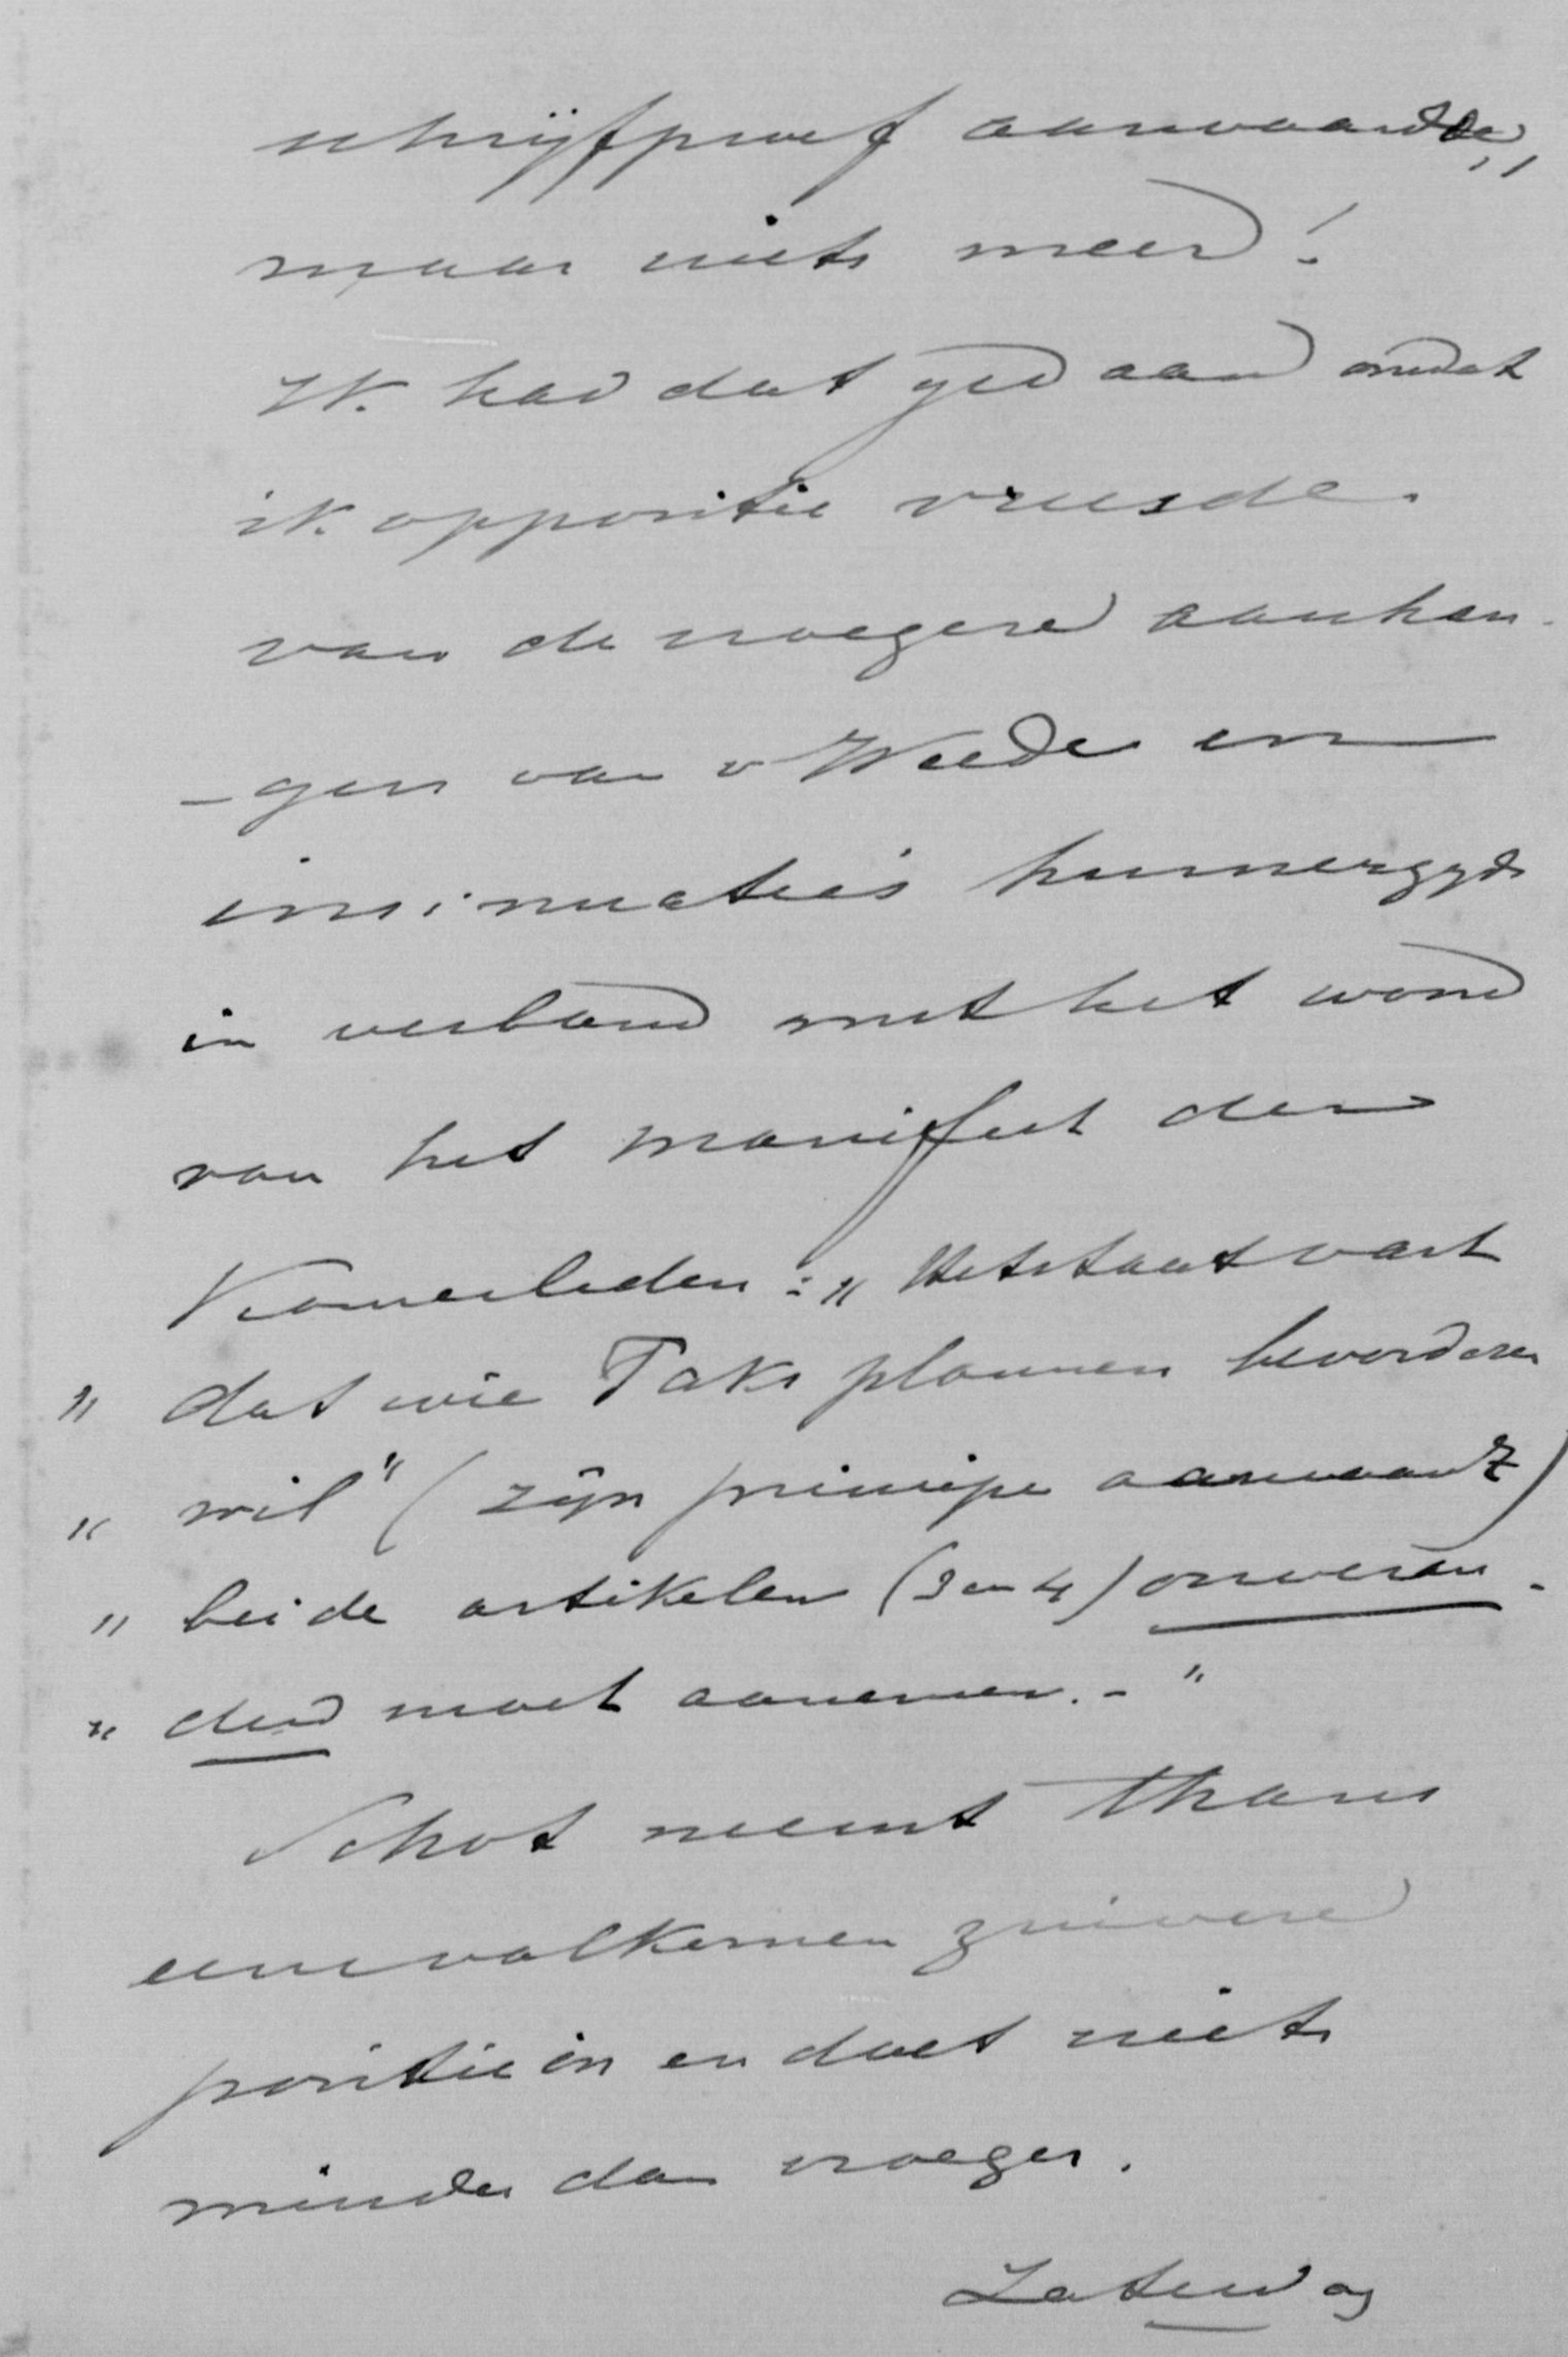 schrijfproef aanvaardde,,
maar niets meer!
Ik had dat gedaan omdat
ik oppositie vreesde
van de vroegere aanhan-
-gers van v Weede en
insinuatie's hunnerzyds
in verband met het woord
van het manifest der
Kamerleden: „Het staat vast
„ dat wie Taks plannen bevorderen
„ wil" (zijn principe aanvaardt)
„ beide artikelen (3 en 4) onveran-
„ derd moet aannemen.-"
Schot neemt thans
eene volkomen zuivere
positie in en doet niets
minder dan vroeger.
Zaterdag